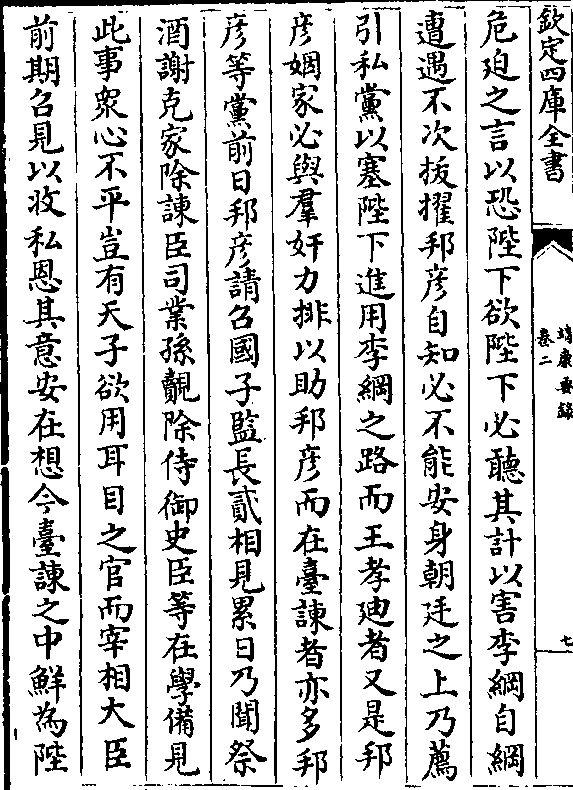 欽定四庫全書
靖康要錄
卷二
七
危廹之言以恐陛下欲陛下必聽其計以害李綱自綱
遭遇不次㧞擢邦彦自知必不能安身朝廷之上乃薦
引私黨以塞陛下進用李綱之路而王孝廸者又是邦
彦姻家必與羣奸力排以助邦彦而在臺諫者亦多邦
彦等黨前日邦彦請召國子監長貳相見累日乃聞祭
酒謝克家除諫臣司業孫覿除侍御史臣等在學備見
此事衆心不平豈有天子欲用耳目之官而宰相大臣
前期召見以收私恩其意安在想今臺諫之中鮮為陛